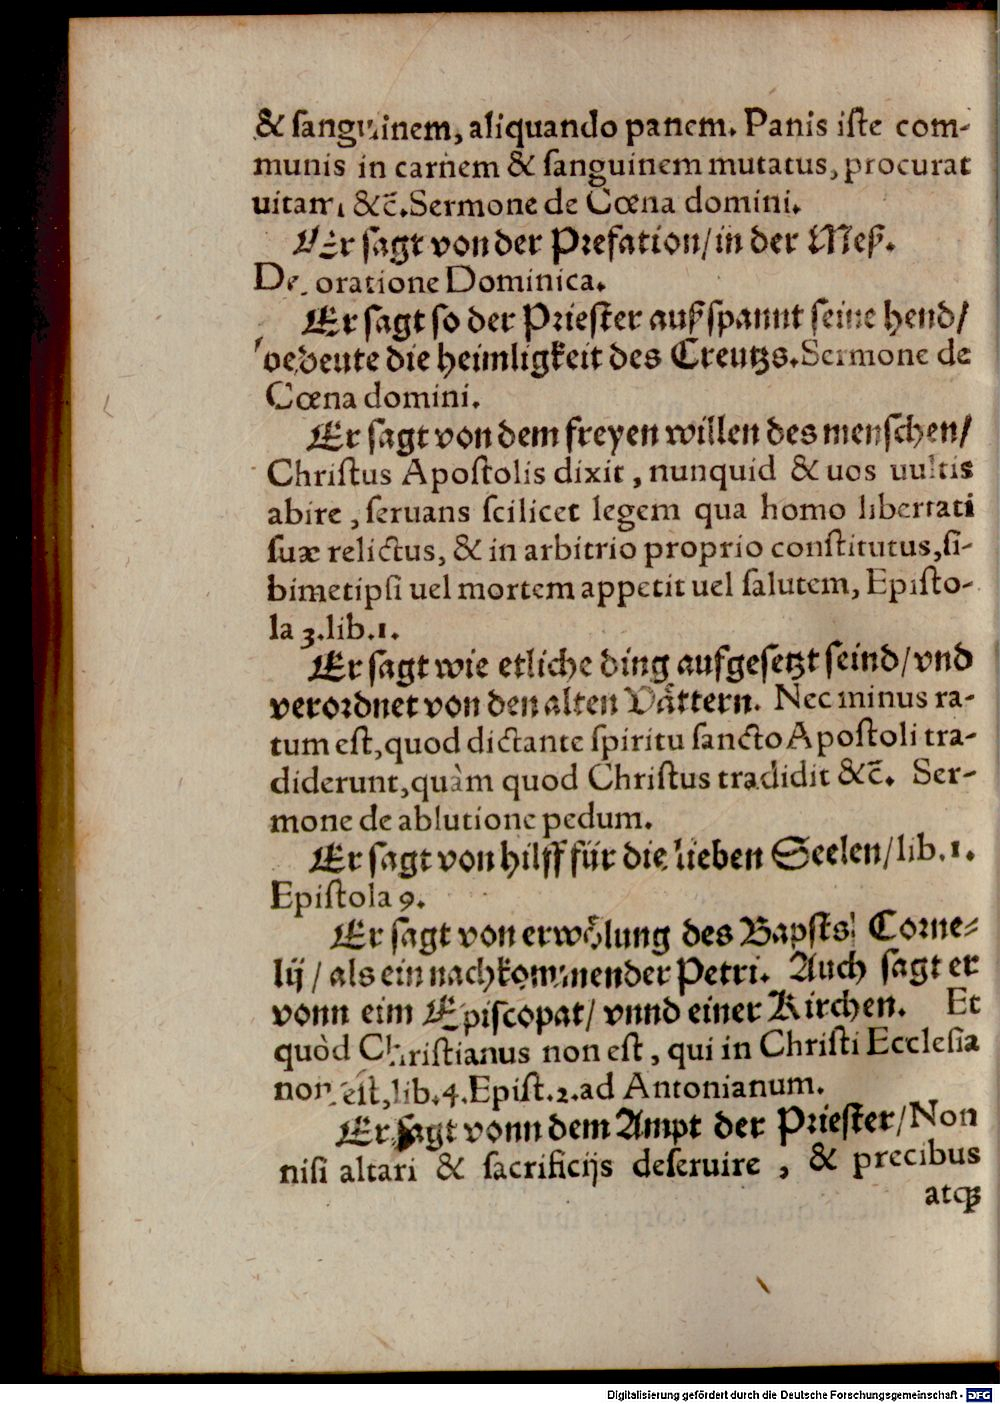 & sanguinem, aliquando panem. Panis iste com-
munis in carnem & sanguinem mutatus, procurat
uitam &c̄. Sermone de Cœna domini.
Er sagt von der Prefation/ in der Meß.
De oratione Dominica.
Er sagt so der Priester außspannt seine hend/
bedeute die heimligkeit des Creutzs. Sermone de
Cœna domini.
Er sagt von dem freyen willen des menschen/
Christus Apostolis dixit, nunquid & uos uultis
abire, seruans scilicet legem qua homo libertati
suæ relictus, & in arbitrio proprio constitutus, si-
bimetipsi uel mortem appetit uel salutem, Episto-
la 3. lib. 1.
Er sagt wie etliche ding aufgesetzt seind/ vnd
verordnet von den alten Vättern. Nec minus ra-
tum est, quod dictante spiritu sancto Apostoli tra-
diderunt, quàm quod Christus tradidit &c̄. Ser-
mone de ablutione pedum.
Er sagt von hilff für die lieben Seelen/ lib. 1.
Epistola 9.
Er sagt von erwölung des Bapsts/ Corne-
lij/ als ein nachkommender Petri. Auch sagt er
vonn eim Episcopat/ vnnd einer Kirchen. Et
quòd Christianus non est, qui in Christi Ecclesia
non est, lib. 4. Epist. 2. ad Antonianum.
Er sagt vonn dem Ampt der Priester/ Non
nisi altari & sacrificijs deseruire, & precibus
atqꝫ
Digitalisierung gefördert durch die Deutsche Forschungsgemeinschaft - DFG